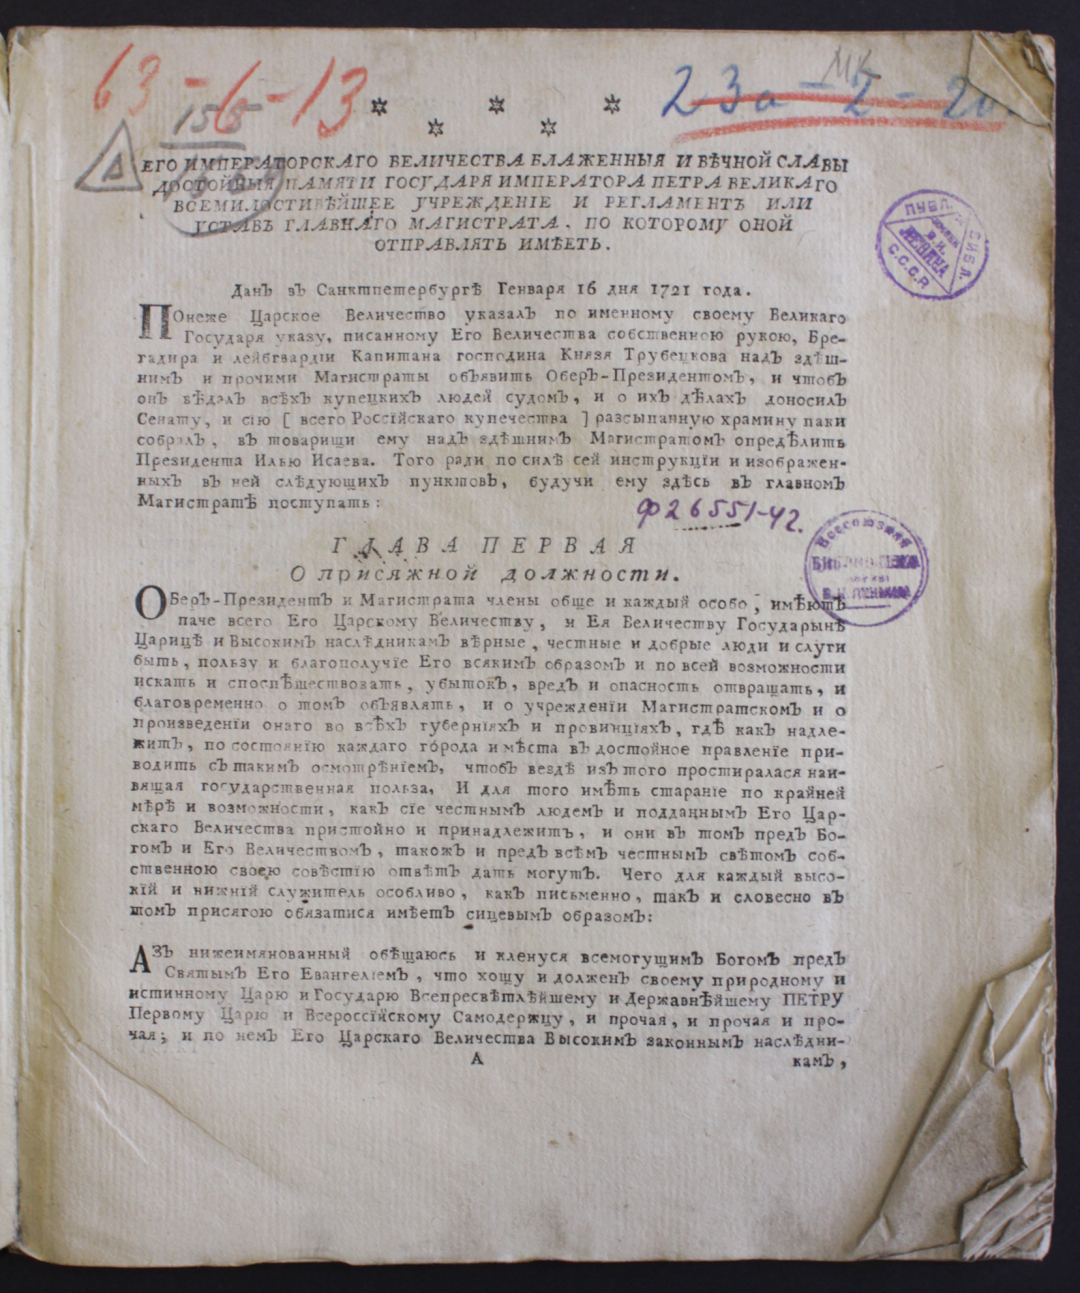 63-6-13
23а-2-20
МК
155
ЕГО ИМПЕРАТОРСКАГО ВЕЛИЧЕСТВА БЛАЖЕННЫЯ И ВѢЧНОЙ СЛАВЫ
ДОСТОЙНЫЯ ПАМЯТИ ГОСУДАРЯ ИМПЕРАТОРА ПЕТРА ВЕЛИКАГО
ВСЕМИЛОСТИВѢЙШЕЕ УЧРЕЖДЕНІЕ И РЕГЛАМЕНТЪ ИЛИ
УСТАВЪ ГЛАВНАГО МАГИСТРАТА, ПО КОТОРОМУ ОНОЙ
ОТПРАВЛЯТЬ ИМѢЕТЪ.
Данъ въ Санктпетербургѣ Генваря 16 дня 1721 года.
ПОнеже Царское Величество указалъ по именному своему Великаго
Государя указу, писанному Его Величества собственною рукою, Бре-
гадира и лейбгвардіи Капитана господина Князя Трубецкова надъ здѣш-
нимъ и прочими Магистраты объявить Оберъ-Президентомъ, и чтобъ
онъ вѣдалъ всѣхъ купецкихъ людей судомъ, и о ихъ дѣлахъ доносилъ
Сенату, и сію [ всего Россійскаго купечества ] разсыпанную храмину паки
собралъ, въ товарищи ему надъ здѣшнимъ Магистратомъ опредѣлить
Президента Илью Исаева. Того ради по силѣ сей инструкціи и изображен-
ныхъ въ ней слѣдующихъ пунктовъ, будучи ему здѣсь въ главномъ
Магистратѣ поступать:
Ф26551-42.
ГЛАВА ПЕРВАЯ
О присяжной должности.
ОБеръ-Президентъ и Магистрата члены обще и каждый особо, имѣютъ
паче всего Его Царскому Величеству, и Ея Величеству Государынѣ
Царицѣ и Высокимъ наслѣдникамъ вѣрные, честные и добрые люди и слуги
быть, пользу и благополучіе Его всякимъ образомъ и по всей возможности
искать и споспѣшествовать, убытокъ, вредъ и опасность отвращать, и
благовременно о томъ объявлять, и о учрежденіи Магистратскомъ и о
произведеніи онаго во всѣхъ губерніяхъ и провинціяхъ, гдѣ какъ надле-
житъ, по состоянію каждаго города и мѣста въ достойное правленіе при-
водить съ такимъ осмотрѣніемъ, чтобъ вездѣ изъ того простиралася наи-
вящая государственная польза, И для того имѣть стараніе по крайней
мѣрѣ и возможности, какъ сіе честнымъ людемъ и подданнымъ Его Цар-
скаго Величества пристойно и принадлежитъ, и они въ томъ предъ Бо-
гомъ и Его Величествомъ, такожъ и предъ всѣмъ честнымъ свѣтомъ соб-
ственною своею совѣстію отвѣтъ дать могутъ. Чего для каждый высо-
кій и нижній служитель особливо, какъ письменно, такъ и словесно въ
томъ присягою обязатися имѣетъ сицевымъ образомъ:
АЗъ нижеимянованный обѣщаюсь и кленуся всемогущимъ Богомъ предъ
Святымъ Его Евангеліемъ, что хощу и долженъ своему природному и
истинному Царю и Государю Всепресвѣтлѣйшему и Державнѣйшему ПЕТРУ
Первому Царю и Всероссійскому Самодержцу, и прочая, и прочая и про-
чая; и по немъ Его Царскаго Величества Высокимъ законнымъ наслѣдни-
А
камъ,
ПУБЛ. БИБЛ.
В.И.
ЛЕНИНА
С.С.С.Р
Всесоюзная
БИБЛИОТЕКА
В.И.ЛЕНИНА